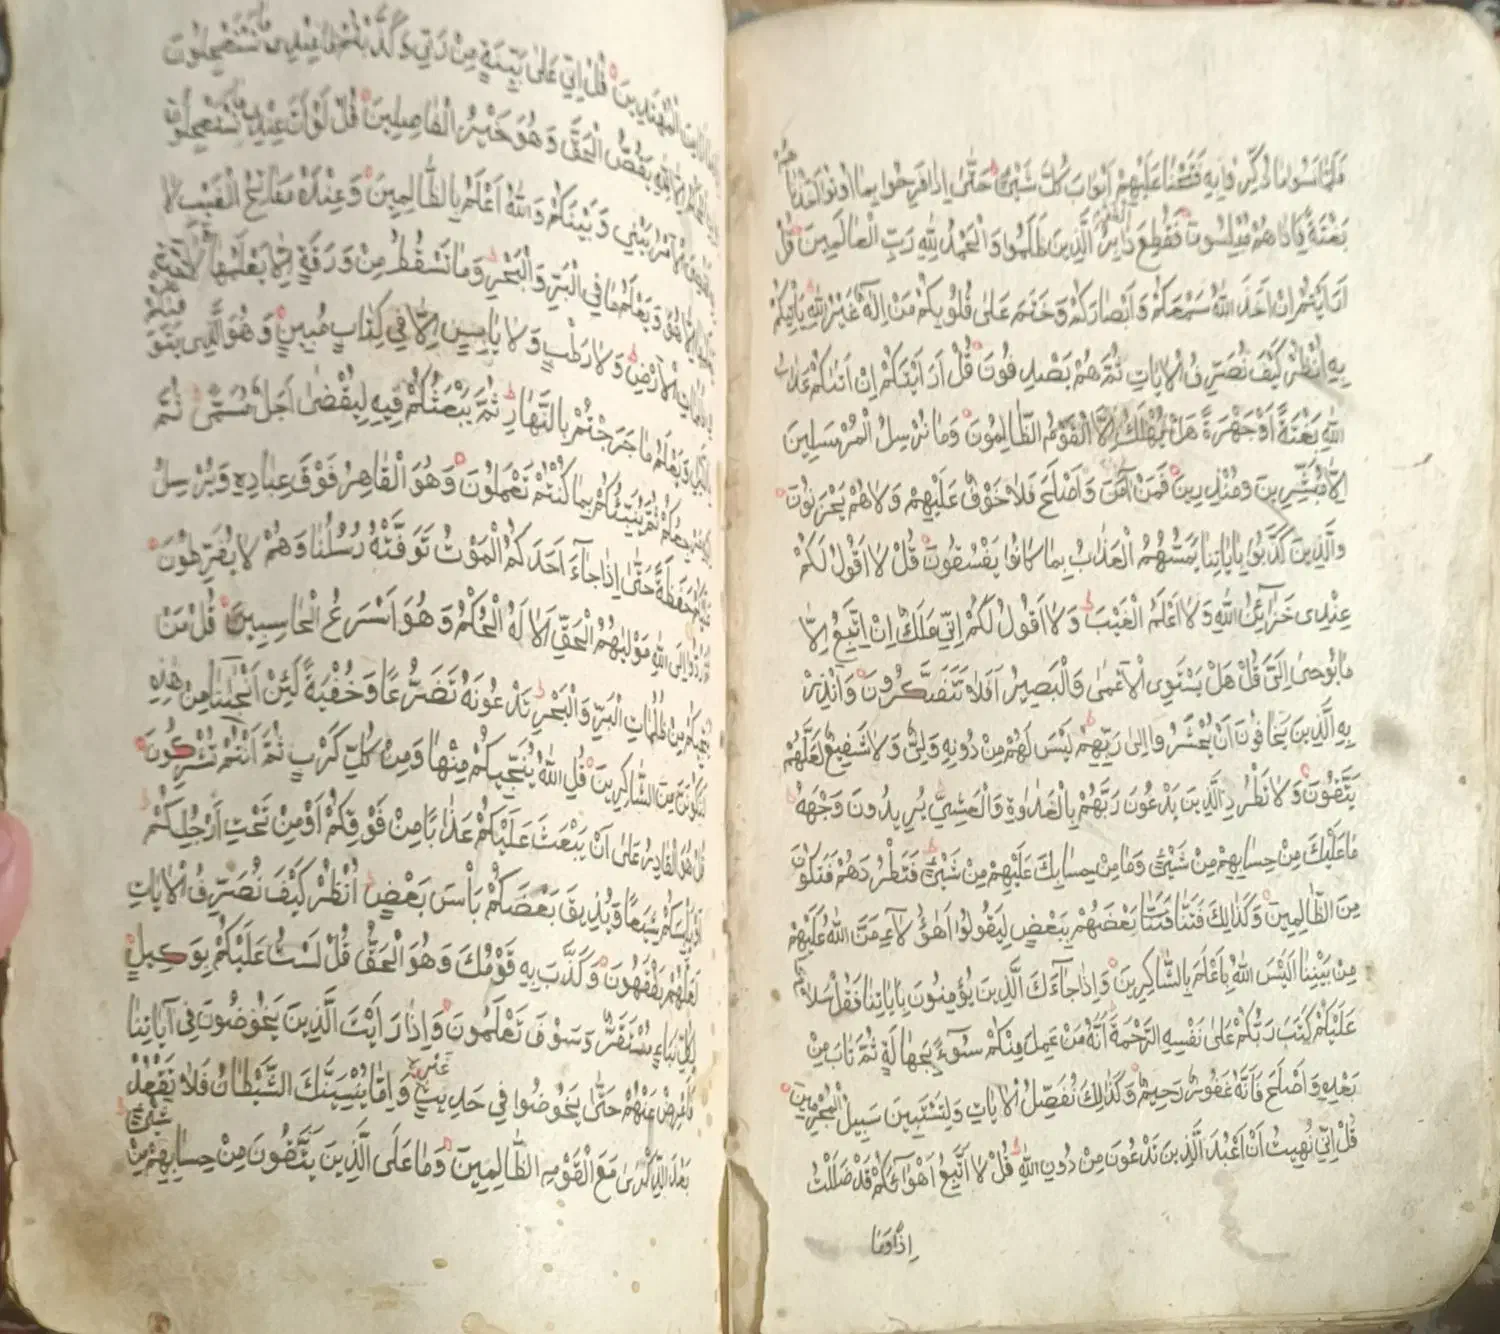 فَلَمَّا نَسُوا مَا ذُكِّرُوا بِهِ فَتَحْنَا عَلَيْهِمْ اَبْوَابَ كُلِّ شَيْئٍ حَتّٰى اِذَا فَرِحُوا بِمَا اُوتُوا اَخَذْنَاهُمْ
بَغْتَةً فَاِذَا هُمْ مُبْلِسُونَ فَقُطِعَ دَابِرُ الْقَوْمِ الَّذِينَ ظَلَمُوا وَالْحَمْدُ لِلّٰهِ رَبِّ الْعَالَمِينَ قُلْ
اَرَاَيْتُمْ اِنْ اَخَذَ اللّٰهُ سَمْعَكُمْ وَاَبْصَارَكُمْ وَخَتَمَ عَلٰى قُلُوبِكُمْ مَنْ اِلٰهٌ غَيْرُ اللّٰهِ يَاْتِيكُمْ
بِهِ اُنْظُرْ كَيْفَ نُصَرِّفُ الْاٰيَاتِ ثُمَّ هُمْ يَصْدِفُونَ قُلْ اَرَاَيْتَكُمْ اِنْ اَتٰىكُمْ عَذَابُ
اللّٰهِ بَغْتَةً اَوْ جَهْرَةً هَلْ يُهْلَكُ اِلَّا الْقَوْمُ الظَّالِمُونَ وَمَا نُرْسِلُ الْمُرْسَلِينَ
اِلَّا مُبَشِّرِينَ وَمُنْذِرِينَ فَمَنْ اٰمَنَ وَاَصْلَحَ فَلَا خَوْفٌ عَلَيْهِمْ وَلَا هُمْ يَحْزَنُونَ
وَالَّذِينَ كَذَّبُوا بِاٰيَاتِنَا يَمَسُّهُمُ الْعَذَابُ بِمَا كَانُوا يَفْسُقُونَ قُلْ لَا اَقُولُ لَكُمْ
عِنْدِى خَزَائِنُ اللّٰهِ وَلَا اَعْلَمُ الْغَيْبَ وَلَا اَقُولُ لَكُمْ اِنِّى مَلَكٌ اِنْ اَتَّبِعُ اِلَّا
مَا يُوحٰى اِلَىَّ قُلْ هَلْ يَسْتَوِى الْاَعْمٰى وَالْبَصِيرُ اَفَلَا تَتَفَكَّرُونَ وَاَنْذِرْ
بِهِ الَّذِينَ يَخَافُونَ اَنْ يُحْشَرُوا اِلٰى رَبِّهِمْ لَيْسَ لَهُمْ مِنْ دُونِهِ وَلِىٌّ وَلَا شَفِيعٌ لَعَلَّهُمْ
يَتَّقُونَ وَلَا تَطْرُدِ الَّذِينَ يَدْعُونَ رَبَّهُمْ بِالْغَدٰوةِ وَالْعَشِىِّ يُرِيدُونَ وَجْهَهُ
مَا عَلَيْكَ مِنْ حِسَابِهِمْ مِنْ شَيْئٍ وَمَا مِنْ حِسَابِكَ عَلَيْهِمْ مِنْ شَيْئٍ فَتَطْرُدَهُمْ فَتَكُونَ
مِنَ الظَّالِمِينَ وَكَذٰلِكَ فَتَنَّا بَعْضَهُمْ بِبَعْضٍ لِيَقُولُوا اَهٰؤُلَاءِ مَنَّ اللّٰهُ عَلَيْهِمْ
مِنْ بَيْنِنَا اَلَيْسَ اللّٰهُ بِاَعْلَمَ بِالشَّاكِرِينَ وَاِذَا جَاءَكَ الَّذِينَ يُؤْمِنُونَ بِاٰيَاتِنَا فَقُلْ سَلَامٌ
عَلَيْكُمْ كَتَبَ رَبُّكُمْ عَلٰى نَفْسِهِ الرَّحْمَةَ اَنَّهُ مَنْ عَمِلَ مِنْكُمْ سُوءً بِجَهَالَةٍ ثُمَّ تَابَ مِنْ
بَعْدِهِ وَاَصْلَحَ فَاَنَّهُ غَفُورٌ رَحِيمٌ وَكَذٰلِكَ نُفَصِّلُ الْاٰيَاتِ وَلِتَسْتَبِينَ سَبِيلُ الْمُجْرِمِينَ
قُلْ اِنِّى نُهِيتُ اَنْ اَعْبُدَ الَّذِينَ تَدْعُونَ مِنْ دُونِ اللّٰهِ قُلْ لَا اَتَّبِعُ اَهْوَاءَكُمْ قَدْ ضَلَلْتُ
اِذًا وَمَا
الْمُهْتَدِينَ قُلْ اِنِّى عَلٰى بَيِّنَةٍ مِنْ رَبِّى وَكَذَّبْتُمْ بِهِ مَا عِنْدِى مَا تَسْتَعْجِلُونَ
يَقُصُّ الْحَقَّ وَهُوَ خَيْرُ الْفَاصِلِينَ قُلْ لَوْ اَنَّ عِنْدِى مَا تَسْتَعْجِلُونَ
الْاَمْرُ بَيْنِى وَبَيْنَكُمْ وَاللّٰهُ اَعْلَمُ بِالظَّالِمِينَ وَعِنْدَهُ مَفَاتِحُ الْغَيْبِ لَا
اِلَّا هُوَ وَيَعْلَمُ مَا فِى الْبَرِّ وَالْبَحْرِ وَمَا تَسْقُطُ مِنْ وَرَقَةٍ اِلَّا يَعْلَمُهَا وَلَا حَبَّةٍ فِى
ظُلُمَاتِ الْاَرْضِ وَلَا رَطْبٍ وَلَا يَابِسٍ اِلَّا فِى كِتَابٍ مُبِينٍ وَهُوَ الَّذِى يَتَوَفّٰيكُمْ
بِالَّيْلِ وَيَعْلَمُ مَا جَرَحْتُمْ بِالنَّهَارِ ثُمَّ يَبْعَثُكُمْ فِيهِ لِيُقْضٰى اَجَلٌ مُسَمًّى ثُمَّ
مَرْجِعُكُمْ ثُمَّ يُنَبِّئُكُمْ بِمَا كُنْتُمْ تَعْمَلُونَ وَهُوَ الْقَاهِرُ فَوْقَ عِبَادِهِ وَيُرْسِلُ
عَلَيْكُمْ حَفَظَةً حَتّٰى اِذَا جَاءَ اَحَدَكُمُ الْمَوْتُ تَوَفَّتْهُ رُسُلُنَا وَهُمْ لَا يُفَرِّطُونَ
ثُمَّ رُدُّوا اِلَى اللّٰهِ مَوْلٰيهُمُ الْحَقِّ اَلَا لَهُ الْحُكْمُ وَهُوَ اَسْرَعُ الْحَاسِبِينَ قُلْ مَنْ
يُنَجِّيكُمْ مِنْ ظُلُمَاتِ الْبَرِّ وَالْبَحْرِ تَدْعُونَهُ تَضَرُّعًا وَخُفْيَةً لَئِنْ اَنْجٰينَا مِنْ هٰذِهِ
لَنَكُونَنَّ مِنَ الشَّاكِرِينَ قُلِ اللّٰهُ يُنَجِّيكُمْ مِنْهَا وَمِنْ كُلِّ كَرْبٍ ثُمَّ اَنْتُمْ تُشْرِكُونَ
قُلْ هُوَ الْقَادِرُ عَلٰى اَنْ يَبْعَثَ عَلَيْكُمْ عَذَابًا مِنْ فَوْقِكُمْ اَوْ مِنْ تَحْتِ اَرْجُلِكُمْ
اَوْ يَلْبِسَكُمْ شِيَعًا وَيُذِيقَ بَعْضَكُمْ بَاْسَ بَعْضٍ اُنْظُرْ كَيْفَ نُصَرِّفُ الْاٰيَاتِ
لَعَلَّهُمْ يَفْقَهُونَ وَكَذَّبَ بِهِ قَوْمُكَ وَهُوَ الْحَقُّ قُلْ لَسْتُ عَلَيْكُمْ بِوَكِيلٍ
لِكُلِّ نَبَاءٍ مُسْتَقَرٌّ وَسَوْفَ تَعْلَمُونَ وَاِذَا رَاَيْتَ الَّذِينَ يَخُوضُونَ فِى اٰيَاتِنَا
فَاَعْرِضْ عَنْهُمْ حَتّٰى يَخُوضُوا فِى حَدِيثٍ غَيْرِهِ وَاِمَّا يُنْسِيَنَّكَ الشَّيْطَانُ فَلَا تَقْعُدْ
بَعْدَ الذِّكْرٰى مَعَ الْقَوْمِ الظَّالِمِينَ وَمَا عَلَى الَّذِينَ يَتَّقُونَ مِنْ حِسَابِهِمْ مِنْ شَيْئٍ